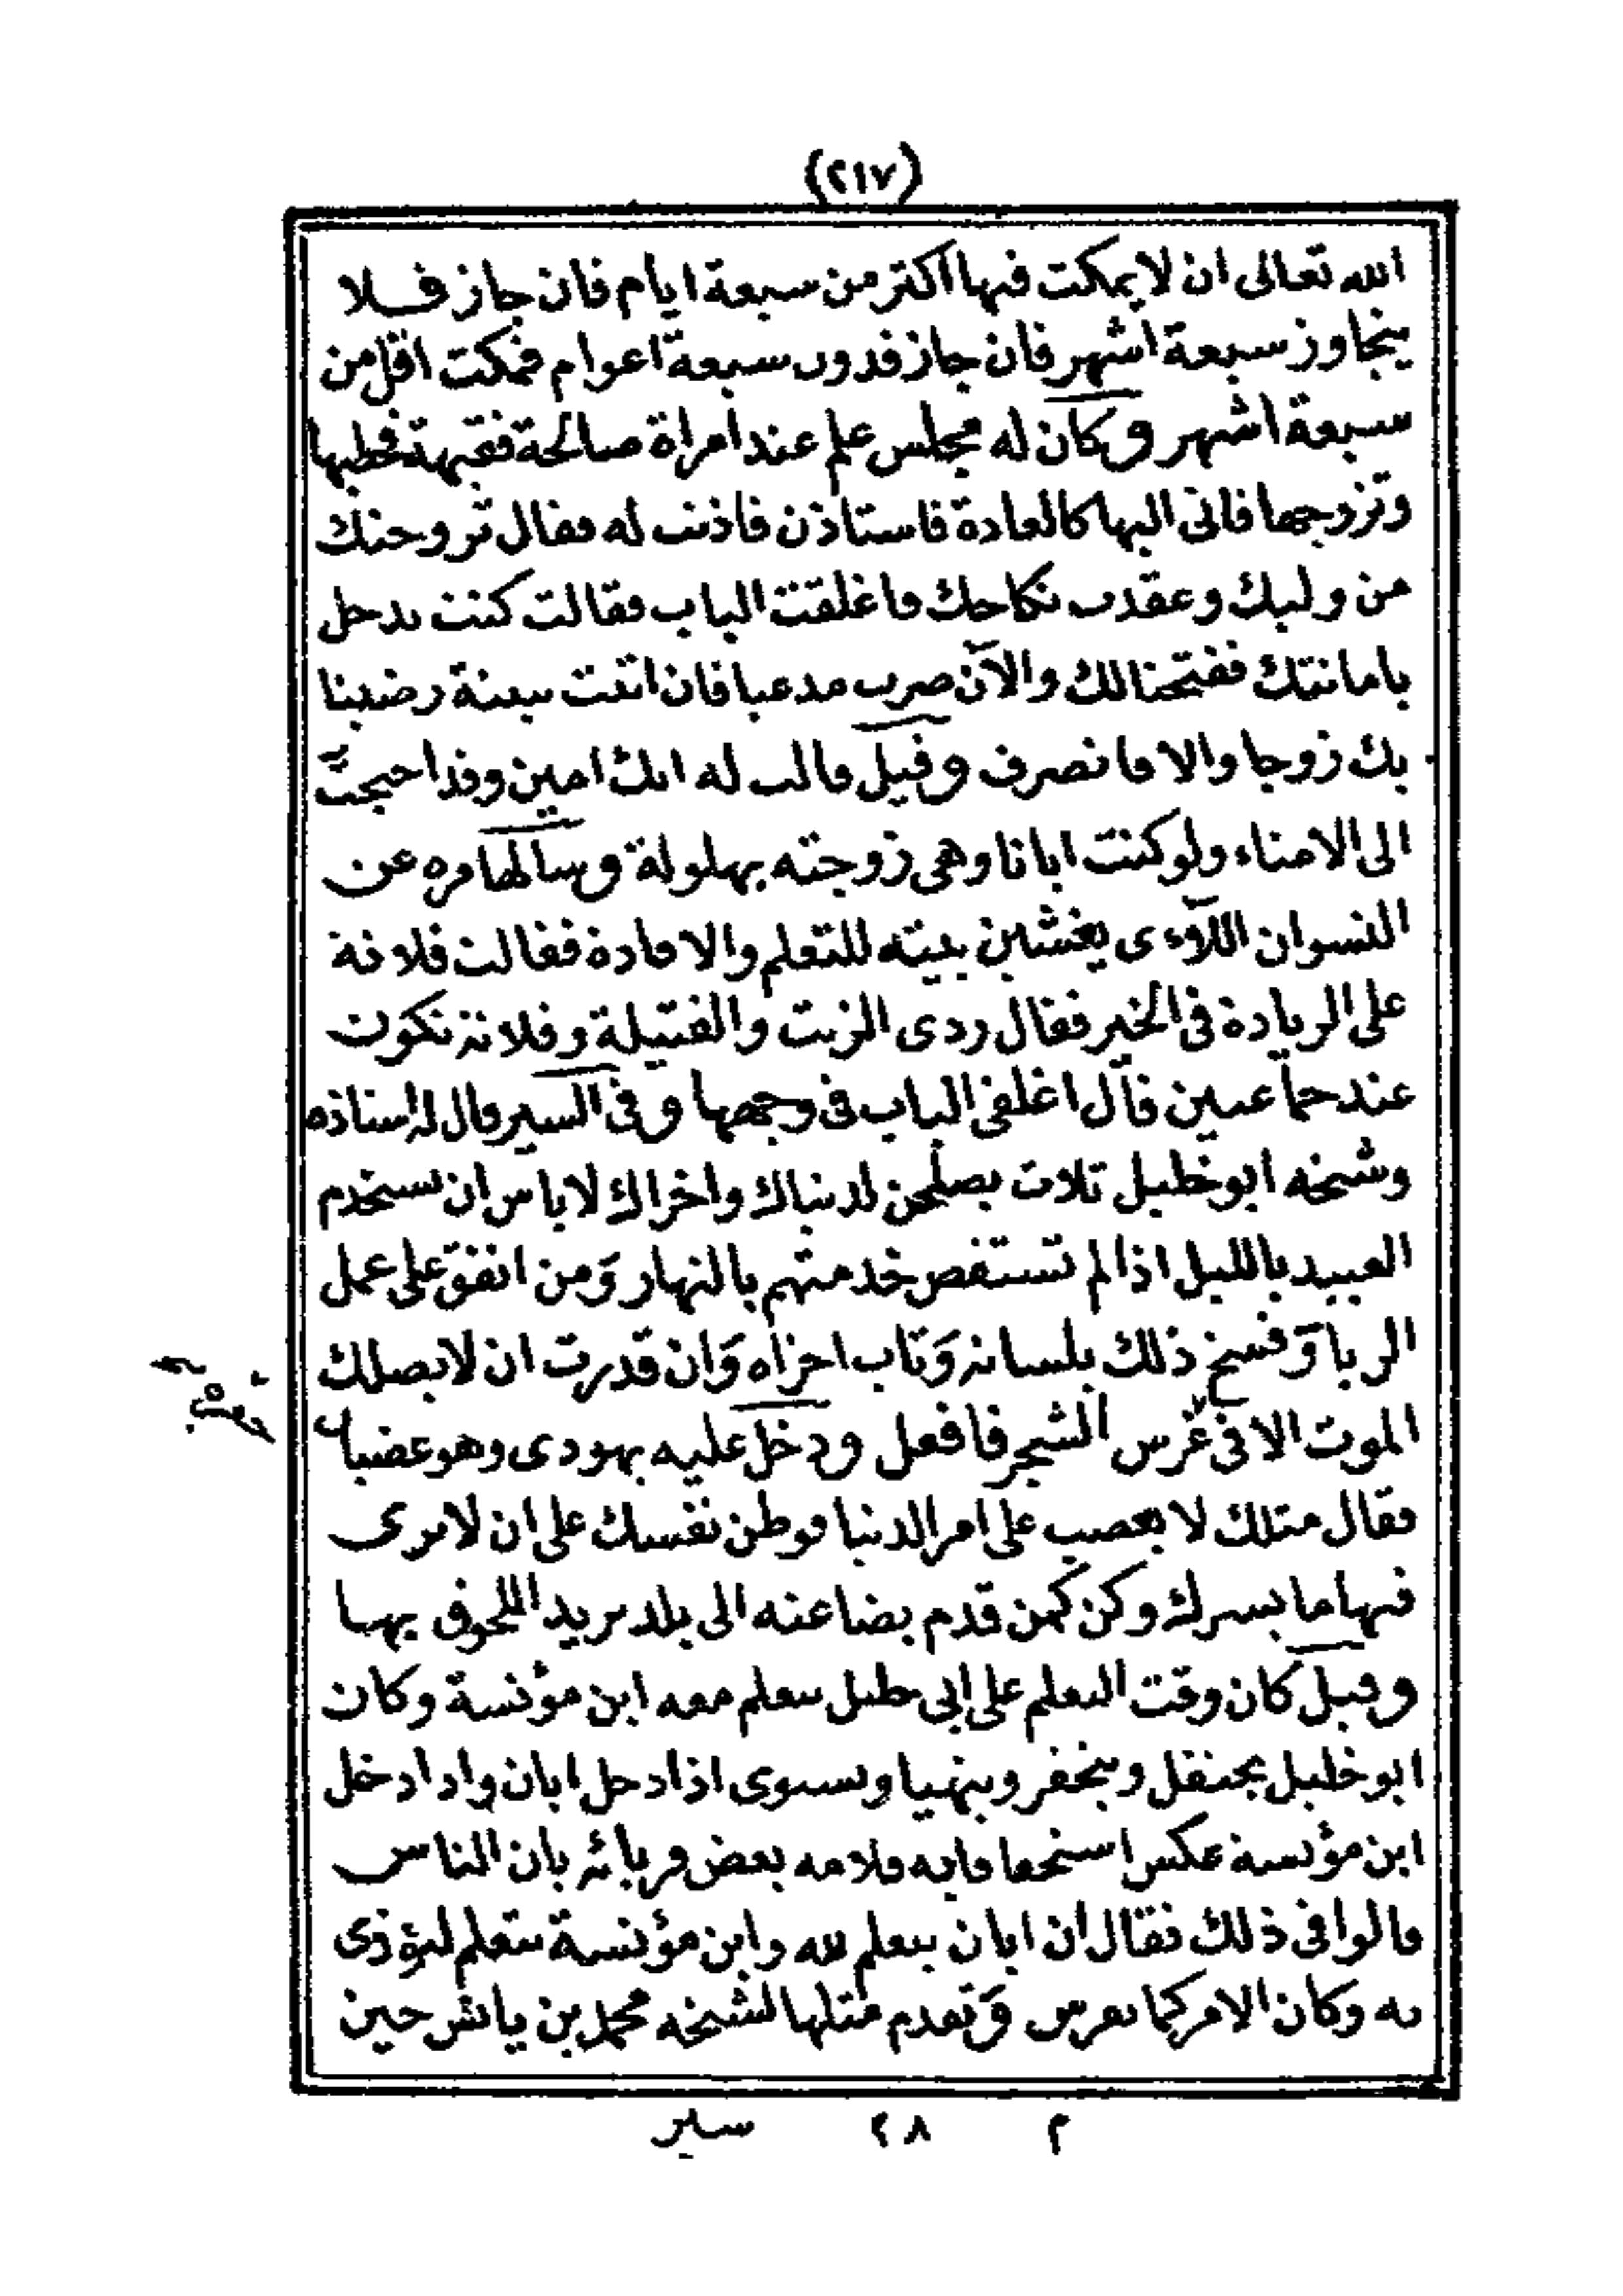 (٢١٧)
الله تعالى ان لا يمكث فيها اكثر من سبعة ايام فان جاز فلا
يتجاوز سبعة اشهر فان جاز فدون سبعة اعوام فمكث اقل من
سبعة اشهر وكان له مجلس علم عند امراة صالحة فقيهة فخطبها
وتزوجها فاتى اليها كالعادة فاستاذن فاذنت له فقال تزوجتك
من وليك وعقدت نكاحك فاغلقت الباب فقالت كنت تدخل
بامانتك ففتحنا لك والآن صرت مدعيا فان اتيت ببينة رضينا
بك زوجا والا فانصرف وقيل قالت له انك امين وقد احتجت
الى الامناء ولو كنت ابانا وهى زوجته بهلولة وسالها مرة عن
النسوان اللآءى يغشين بيته للتعلم والافادة فقالت فلانة
على الزيادة فى الخير فقال زدى الزيت والفتيلة وفلانة تكون
عند حماعين قال اغلقى الباب فى وجهها وفى السير قال له استاذه
وشيخه ابو خليل ثلاث يصلحن لدنياك واخراك لا باس ان تستخدم
العبيد بالليل اذا لم تستقص خدمتهم بالنهار وَمن اتفق على عمل
الربا وَفسخ ذلك بلسانه وَتاب اجزاه وَان قدرت ان لا يصلك
الموت الا فى غرس الشجر فافعل ودخل عليه يهودى وهو غضبان
فقال مثلك لا يغضب على امر الدنيا فوطن نفسك على ان لا ترى
فيها ما يسرك وكن كمن قدم بضاعته الى بلد يريد اللحوق بها
وقيل كان وقت التعلم على ابى خليل يتعلم معه ابن مؤنسة وكان
ابو خليل يحتفل ويتحفز ويتهيا ويستوى اذا دخل ابان واذا دخل
ابن مؤنسة عكس استخفافا به فلامه بعض قربائه بان الناس
قالوا فى ذلك فقال ان ابان يتعلم لله وابن مؤنسة يتعلم ليؤذى
به وكان الامر كما تفرس وَتقدم مثلها لشيخه محمد بن يانس حين
م ٢٨ سير